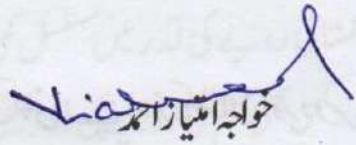 خواجہ امتیاز احمد